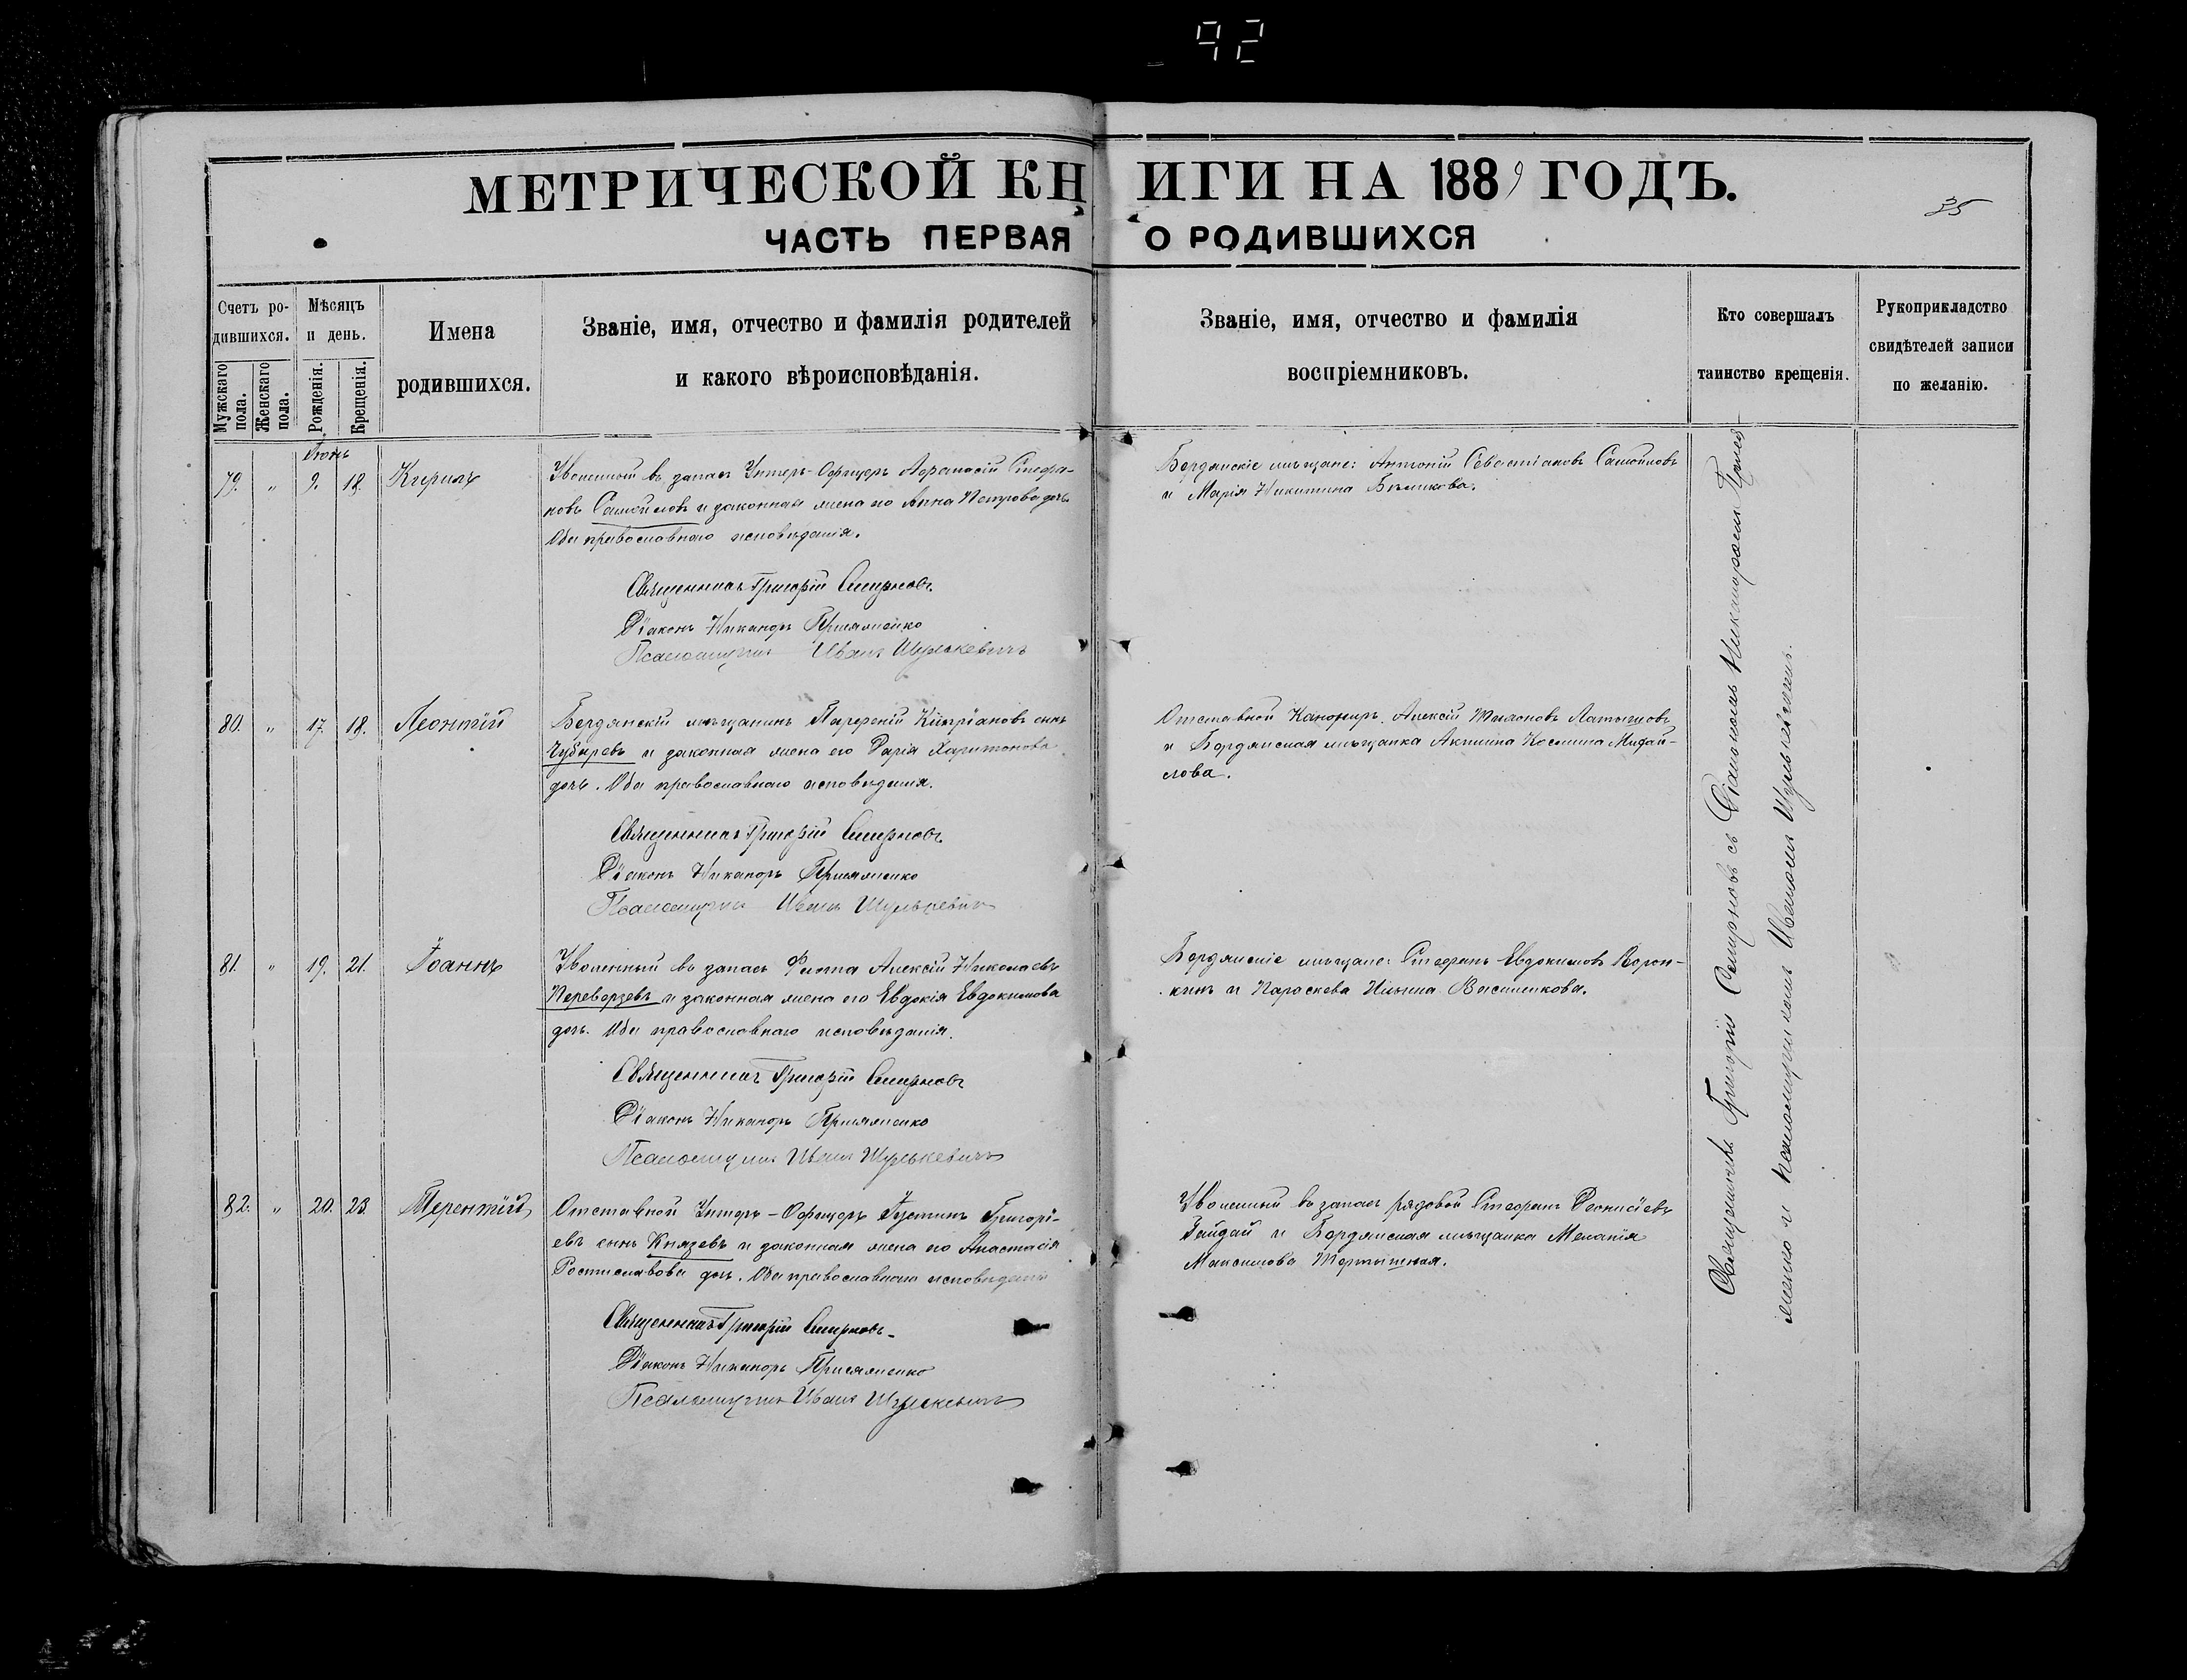 92
МЕТРИЧЕСКОЙ КНИГИ НА 1889 ГОДЪ.
35
ЧАСТЬ ПЕРВАЯ О РОДИВШИХСЯ
Счетъ ро-
дившихся.
Мужскаго пола.
Женскаго пола.
Мѣсяцъ
и день.
Рожденія.
Крещенія.
Имена
родившихся.
Званіе, имя, отчество и фамилія родителей
и какого вѣроисповѣданія.
Званіе, имя, отчество и фамилія
воспріемниковъ.
Кто совершалъ
таинство крещенія.
Рукоприкладство
свидѣтелей записи
по желанію.
Іюнь
79. " 9. 18. Кириллъ
Уволенный въ запасъ Унтеръ-Офицеръ Аѳанасій Стефа-
новъ Самойловъ и законная жена его Анна Петрова дочь.
Оба православнаго исповѣданія.
Священникъ Григорій Смирновъ
Діаконъ Никаноръ Прияженко
Псаломщикъ Иванъ Шулькевичъ
Бердянскіе мѣщане: Антоній Севастіановъ Самойловъ
и Марія Никитина Бѣликова.
80. " 17. 18. Леонтій
Бердянскій мѣщанинъ Парѳеній Кипріановъ сынъ
Чубаревъ и законная жена его Дарія Харитонова
дочь. Оба православнаго исповѣданія.
Священникъ Григорій Смирновъ
Діаконъ Никаноръ Прияженко
Псаломщикъ Иванъ Шулькевичъ
Отставной Канониръ Алексій Латышовъ
и Бердянская мѣщанка Акилина Космина Михай-
лова.
81. " 19. 21. Іоаннъ
Уволенный въ запасъ Флота Алексій Николаевъ
Переверзевъ и законная жена его Евдокія Евдокимова
дочь. Оба православнаго исповѣданія.
Священникъ Григорій Смирновъ
Діаконъ Никаноръ Прияженко
Псаломщикъ Иванъ Шулькевичъ
Бердянскіе мѣщане: Стефанъ Евдокимовъ Ворон-
кинъ и Параскева Ильина Василенкова.
82. " 20. 23. Терентій
Отставной Унтеръ-Офицеръ Іустинъ Григорі-
евъ сынъ Князевъ и законная жена его Анастасія
Ростиславова дочь. Оба православнаго исповѣданія
Священникъ Григорій Смирновъ
Діаконъ Никаноръ Прияженко
Псаломщикъ Иванъ Шулькевичъ
Уволенный въ запасъ рядовой Стефанъ Діонисіевъ
Гайдай и Бердянская мѣщанка Меланія
Максимова
Священникъ Григорій Смирновъ съ Діакономъ Никаноромъ Прия-
женко и псаломщикомъ Иваномъ Шулькевичемъ.